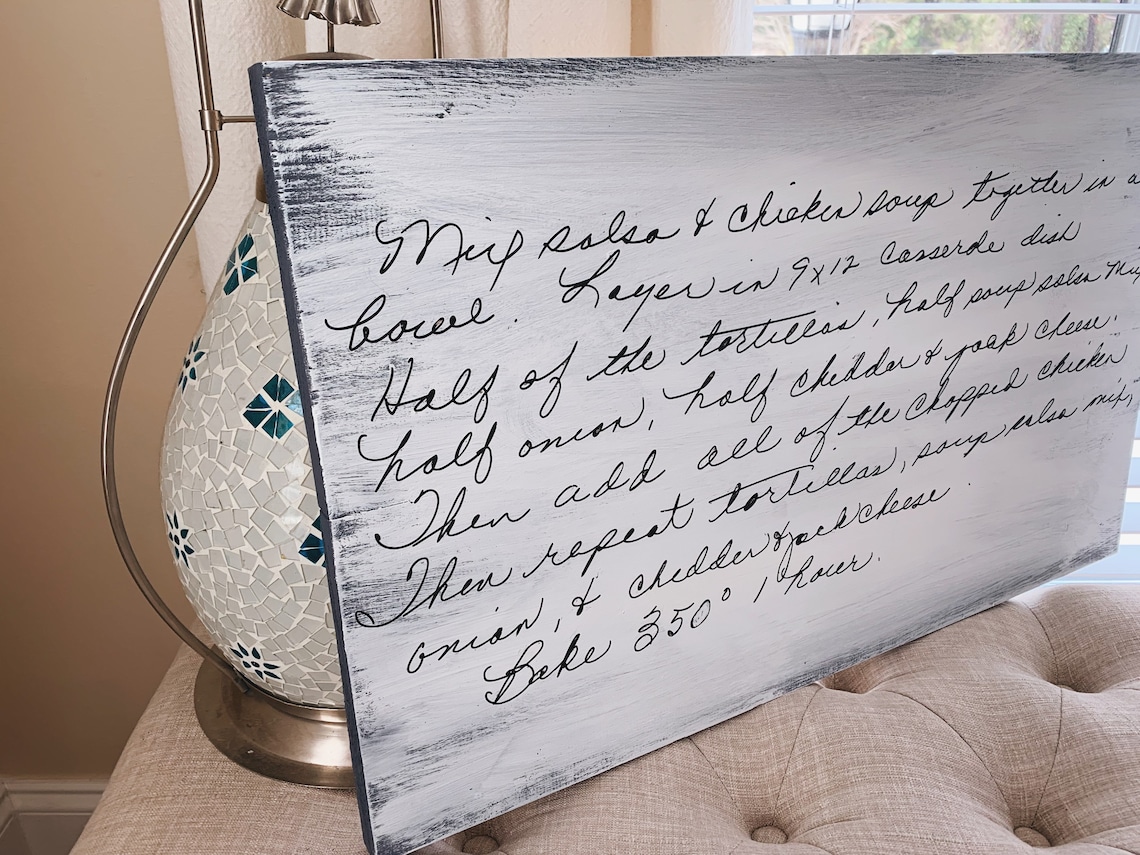 Mix salsa & chicken soup together in a
bowl. Layer in 9x12 casserole dish
Half of the tortillas, half soup salsa mix
half onion, half cheddar & jack cheese.
Then add all of the chopped chicken
Then repeat tortillas, soup salsa mix,
onion, & chedder & jack cheese.
Bake 350° 1 hour.